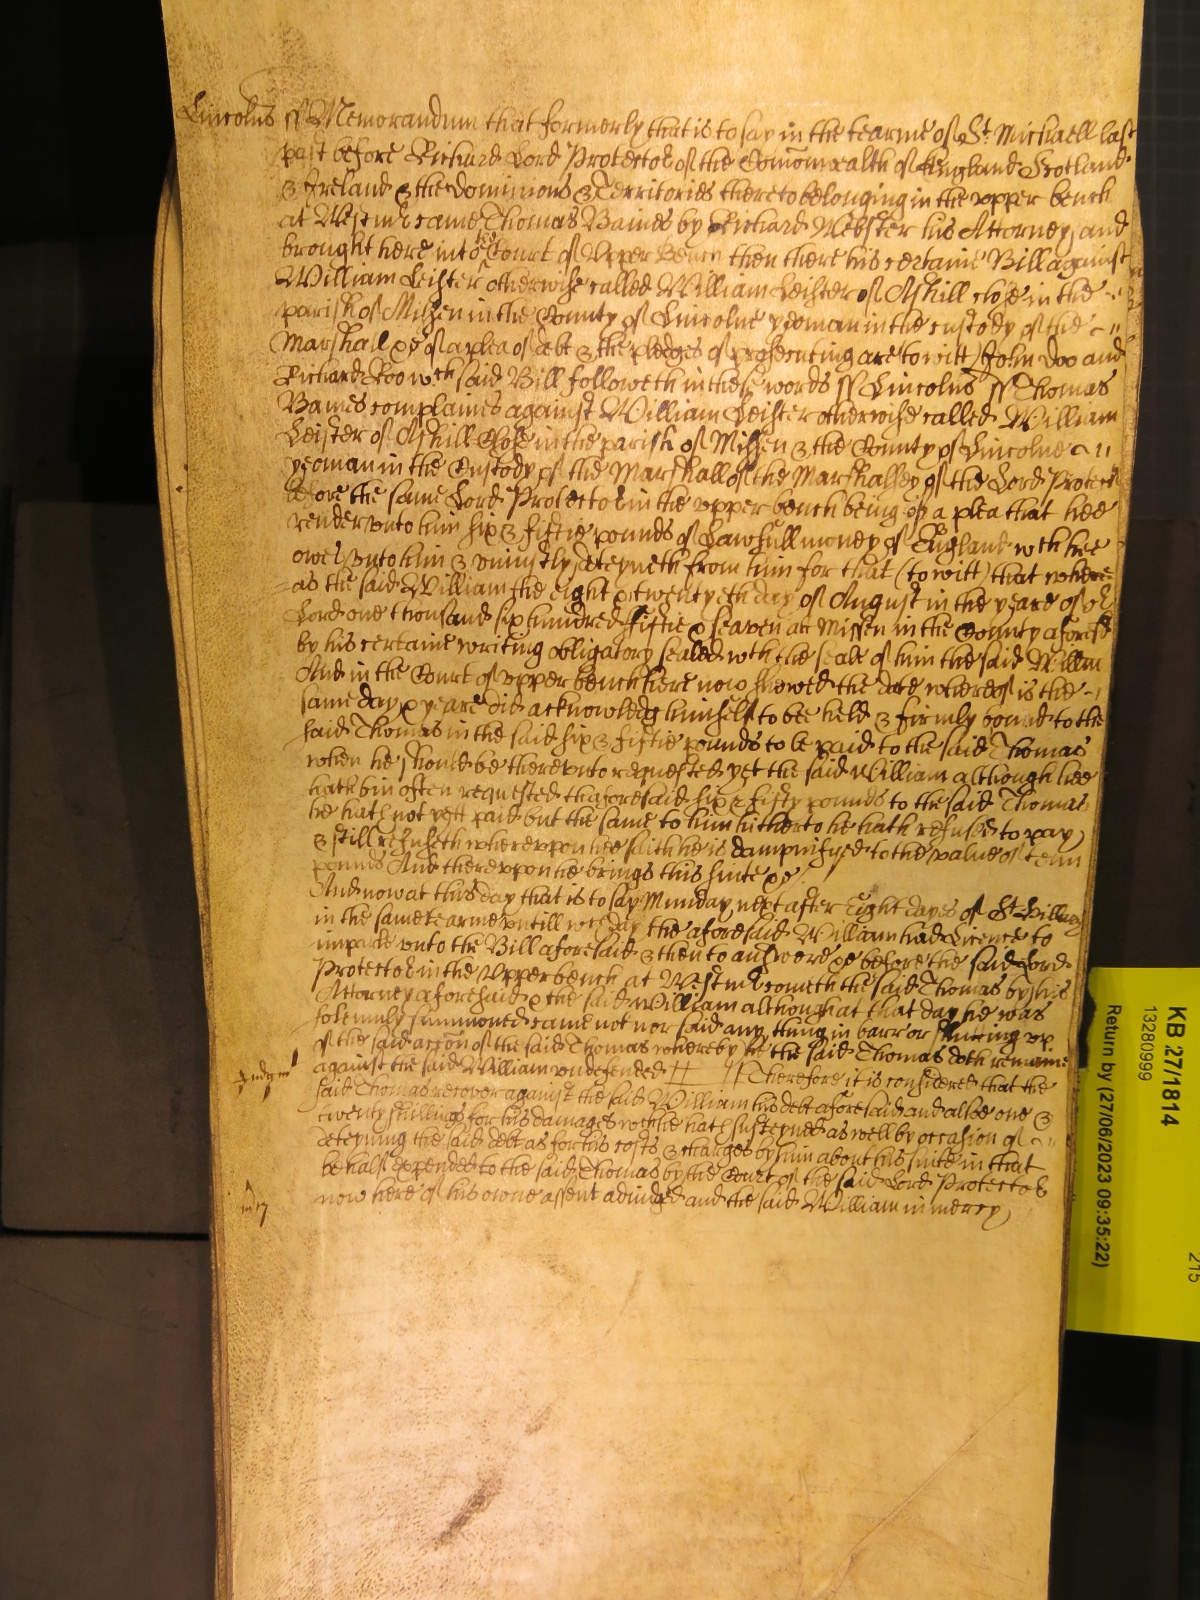 Lincolnė ss Memorandum that formerly that is to say in the tearme of St Michaell last
past before Richard Lord Protector of the Comonwealth of England Scotland
& Ireland & the dominions & Territories thereto belonging in the upper bench
at Westmr came Thomas Baines by Richard Webster his Attorney and
brought here into the Court of Upper Bench then there his certaine Bill against
William Leister otherwise called William Leister of Askill close in the
parish of Missen in the County of Lincolne yeoman in the custody of the
Marshall &c of a plea of debt & the pledges of prosecuting are to witt John Doo and
Richard Roo wch said Bill followeth in these words ss Lincolne ss Thomas
Baines complaines against William Leister otherwise called William
Leister of Askill Close in the parish of Missen & the County of Lincolne
yeoman in the Custody of the Marshall of the Marshallsey of the Lord Protector
before the same Lord Protector in the upper bench being of a plea that hee
render unto him six & fiftie pounds of Lawfull money of England wch hee
owes unto him & uniustly deteyneth from him for that (to witt) that where
as the said William the eight & twentyeth day of August in the yeare of or
Lord one thousand six hundred fiftie & seaven att Missen in the County aforesd
by his certaine writing obligatory sealed wth the seale of him the said Willm
And in the Court of upper bench here now shewed the date whereof is the
same day & yeare did acknowledg himself to bee held & firmly bound to the
said Thomas in the said six & fiftie pounds to be paid to the said Thomas
when he should be thereunto requested yet the said William although hee
hath bin often requested thaforesaid six & fifty pounds to the said Thomas
he hath not yett paid but the same to him hitherto he hath refused to pay
& still refuseth whereupon hee saith he is dampnifyed to the value of tenn
pounds And thereupon he brings this suite &c
And now at this day that is to say Munday next after Eight dayes of St Hillary
in the same tearme untill wch day the aforesaid William had Licence to
imparle unto the Bill aforesaid & then to answere &c before the said Lord
Protector in the Upper bench at Westmr cometh the said Thomas by his
Attorney aforesaid & the said William although at that day he was
solemnly summoned came not nor said any thing in barr or
of the said accon of the said Thomas whereby he the said Thomas doth remaine
against the said William undefended Therefore it is considered that the
Judgmt
said Thomas recover against the said William his debt aforesaid and alsoe one &
twenty shillings for his damages wch he hath susteyned as well by occasion of
deteyning the said debt as for his costs & charges by him about his suite in that
behalf expended to the said Thomas by the Court of the said Lord Protector
now here of his owne assent adiudged and the said William in mercy
mcy
KB 27/1814
13280999
Return by (27/06/2023 09:35:22)
215